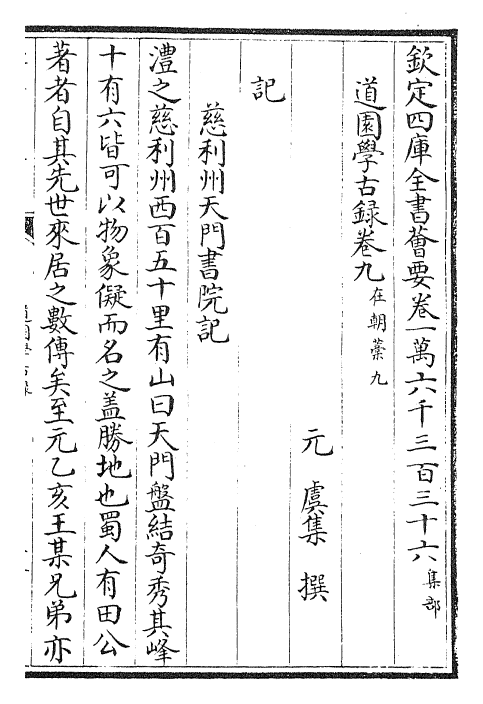 欽定四庫全書薈要卷一萬六千三百三十六集部
道園學古録卷九在朝藁九
元 虞集 撰
記
慈利州天門書院記
澧之慈利州西百五十里有山曰天門盤結奇秀其峰
十有六皆可以物象儗而名之盖勝地也蜀人有田公
著者自其先世來居之數傳矣至元乙亥王某兄弟亦